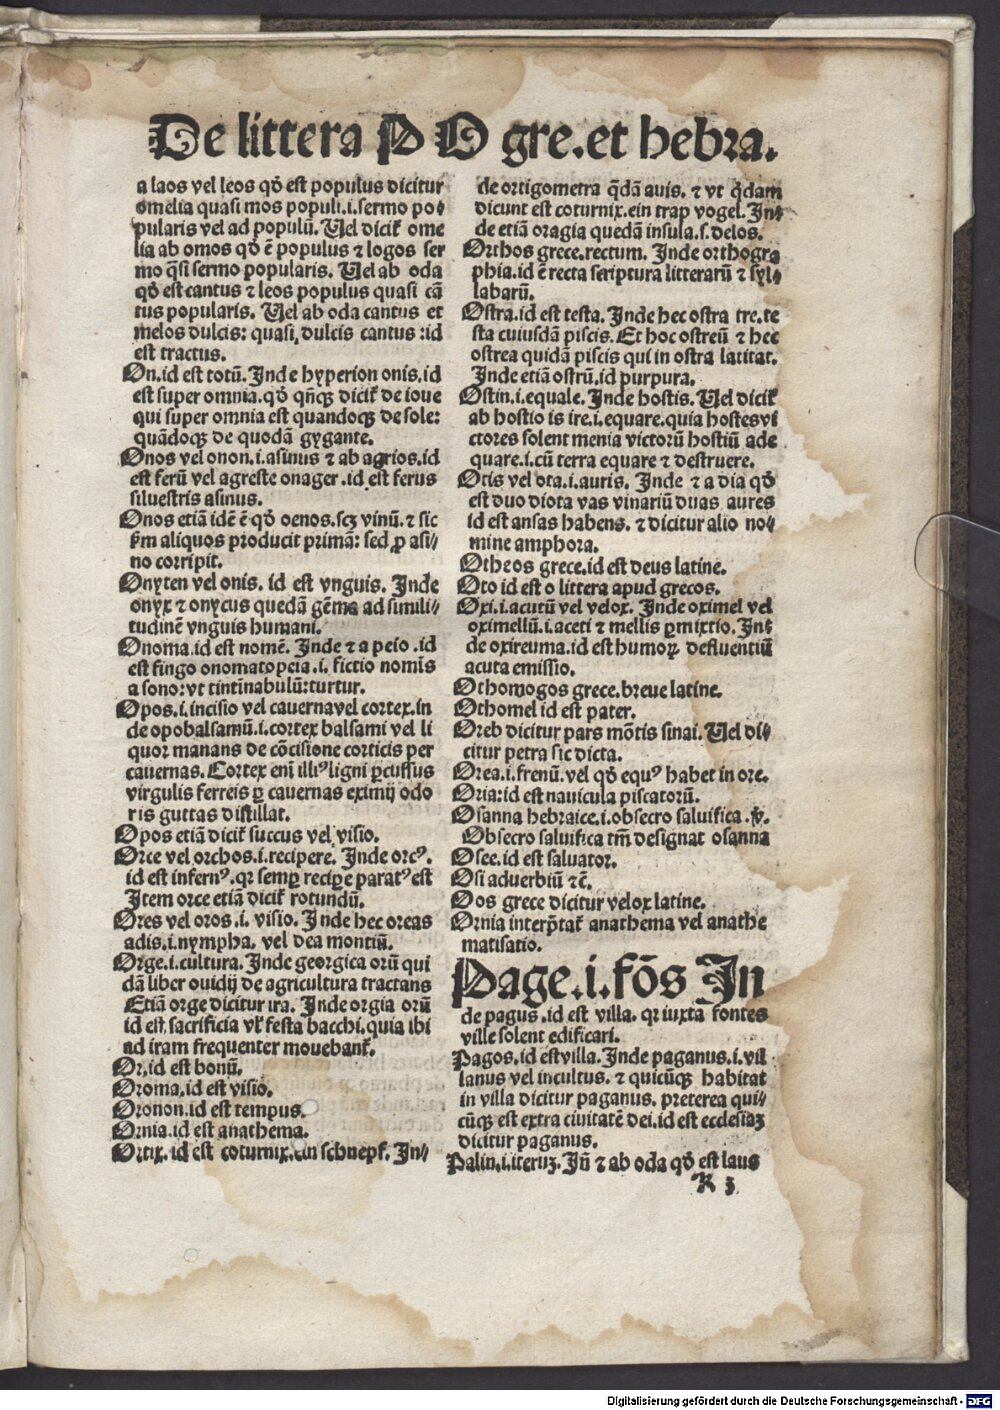 De littera P O gre. et hebra.
a laos vel leos qď est populus dicitur
omelia quasi mos populi.i.sermo po⸗
pularis vel ad populū. Uel dicit̄ ome
lia ab omos qď ē populus ⁊ logos ser
mo q̄si sermo popularis. Uel ab oda
qď est cantus ⁊ leos populus quasi cā
tus popularis. Uel ab oda cantus et
melos dulcis: quasi dulcis cantus :id
est tractus.
On.id est totū. Inde hyperion onis.id
est super omnia.qď qñq̄ꝫ dicit̄ de ioue
qui super omnia est quandocꝫ de sole:
quādocꝫ de quodā gygante.
Onos vel onon.i.asinus ⁊ ab agrios.id
est ferū vel agreste onager .id est ferus
siluestris asinus.
Onos etiā idē ē qď oenos.scꝫ vinū.⁊ sic
ẜm aliquos producit primā: sed ꝓ asi⸗
no corripit.
Onyten vel onis. id est vnguis. Inde
onyx ⁊ onycus quedā gēma ad simili⸗
tudinē vnguis humani.
Onoma.id est nomē. Inde ⁊ a peio .id
est fingo onomatopeia.i. fictio nomīs
a sono:vt tintinabulū:turtur.
Opos.i.incisio vel cauernavel cortex.in
de opobalsamū.i.cortex balsami vel li
quor manans de cōcisione corticis per
cauernas. Cortex eni illiꝰ ligni ꝑcussus
virgulis ferreis ꝑ cauernas eximij odo
ris guttas distillat.
Opos etiā dicit̄ succus vel visio.
Orce vel orchos.i.recipere. Inde orcꝰ.
id est infernꝰ.qr semꝑ reciꝑe paratꝰ est
Item orce etiā dicit̄ rotundū.
Ores vel oros.i. visio. Inde hec oreas
adis.i.nympha. vel dea montiū.
Orge.i.cultura. Inde georgica orū qui
dā liber ouidij de agricultura tractans
Etiā orge dicitur ira. Inde orgia orū
id est sacrificia vł festa bacchi.quia ibi
ad iram frequenter mouebant̄.
Or.id est bonū.
Oroma.id est visio.
Oronon.id est tempus.
Ornia.id est anathema.
Ortix. id est coturnix.ein schnepf. In⸗
de ortigometra q̄dā auis. ⁊ vt q̄dam
dicunt est coturnix.ein trap vogel. In⸗
de etiā oragia quedā insula.s.delos.
Orthos grece.rectum. Inde orthogra
phia.id ē recta scriptura litterarū ⁊ syl⸗
labarū.
Ostra.id est testa. Inde hec ostra tre.te
sta cuiusdā piscis. Et hoc ostreū ⁊ hec
ostrea quidā piscis qui in ostra latitat.
Inde etiā ostrū.id purpura.
Ostin.i.equale. Inde hostis. Uel dicit̄
ab hostio is ire.i.equare.quia hostesvi
ctores solent menia victorū hostiū ade
quare.i.cū terra equare ⁊ destruere.
Otis vel ota.i.auris. Inde ⁊ a dia qď
est duo diota vas vinariū duas aures
id est ansas habens. ⁊ dicitur alio no⸗
mine amphora.
Otheos grece.id est deus latine.
Oto id est o littera apud grecos.
Oxi.i.acutū vel velox. Inde oximel vel
oximellū.i.aceti ⁊ mellis ꝑmixtio. In⸗
de oxireuma.id est humoꝝ defluentiū
acuta emissio.
Othomogos grece.breue latine.
Othomel id est pater.
Oreb dicitur pars mōtis sinai. Uel di⸗
citur petra sic dicta.
Orea.i.frenū.vel qď equꝰ habet in ore.
Oria:id est nauicula piscatorū.
Osanna hebraice.i.obsecro saluifica.℣.
Obsecro saluifica tm̄ designat osanna
Osee.id est saluator.
Osi aduerbiū ⁊c̄.
Oos grece dicitur velox latine.
Ornia interp̄tat̄ anathema vel anathe
matisatio.
Page.i.fōs In
de pagus.id est villa. qr iuxta fontes
ville solent edificari.
Pagos.id estvilla. Inde paganus.i.vil
lanus vel incultus. ⁊ quicūqꝫ habitat
in villa dicitur paganus. preterea qui⸗
cūqꝫ est extra ciuitatē dei.id est ecclesiaꝫ
dicitur paganus.
Palin.i.iteruꝫ. Iñ ⁊ ab oda qď est laus
K 3
Digitalisierung gefördert durch die Deutsche Forschungsgemeinschaft - DFG